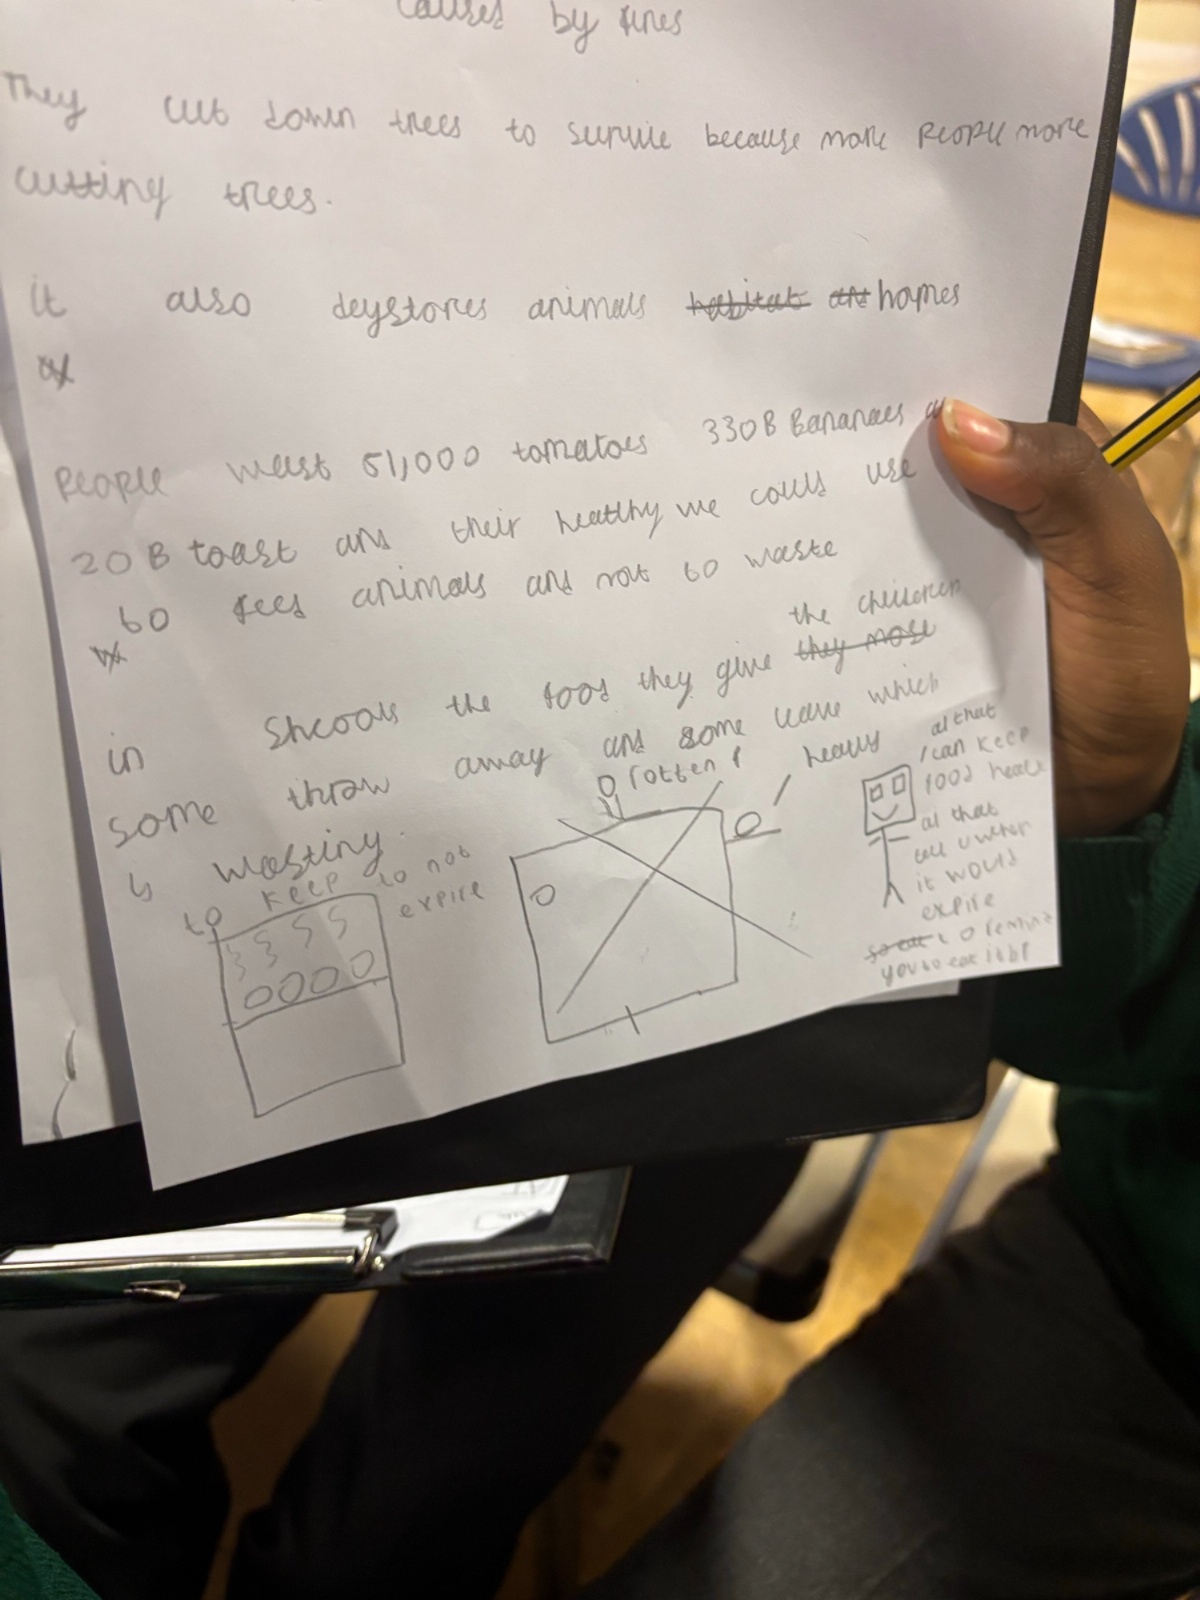 caused by fires
They cut down trees to survive because more people more
cutting trees.
it also deystores animals habitat an homes
People wast 51,000 tomatoes 330B Bananaes
20B toast and their healthy we could use
to feed animals and not to waste
the children
in Shcools the food they give they most
some throw away and some leave which
is wasting.
to keep to not
expire
rotten
healty
ai that
can keep
food
ai that
tell u when
it would
expire
so eat to remind
you to eat it bf